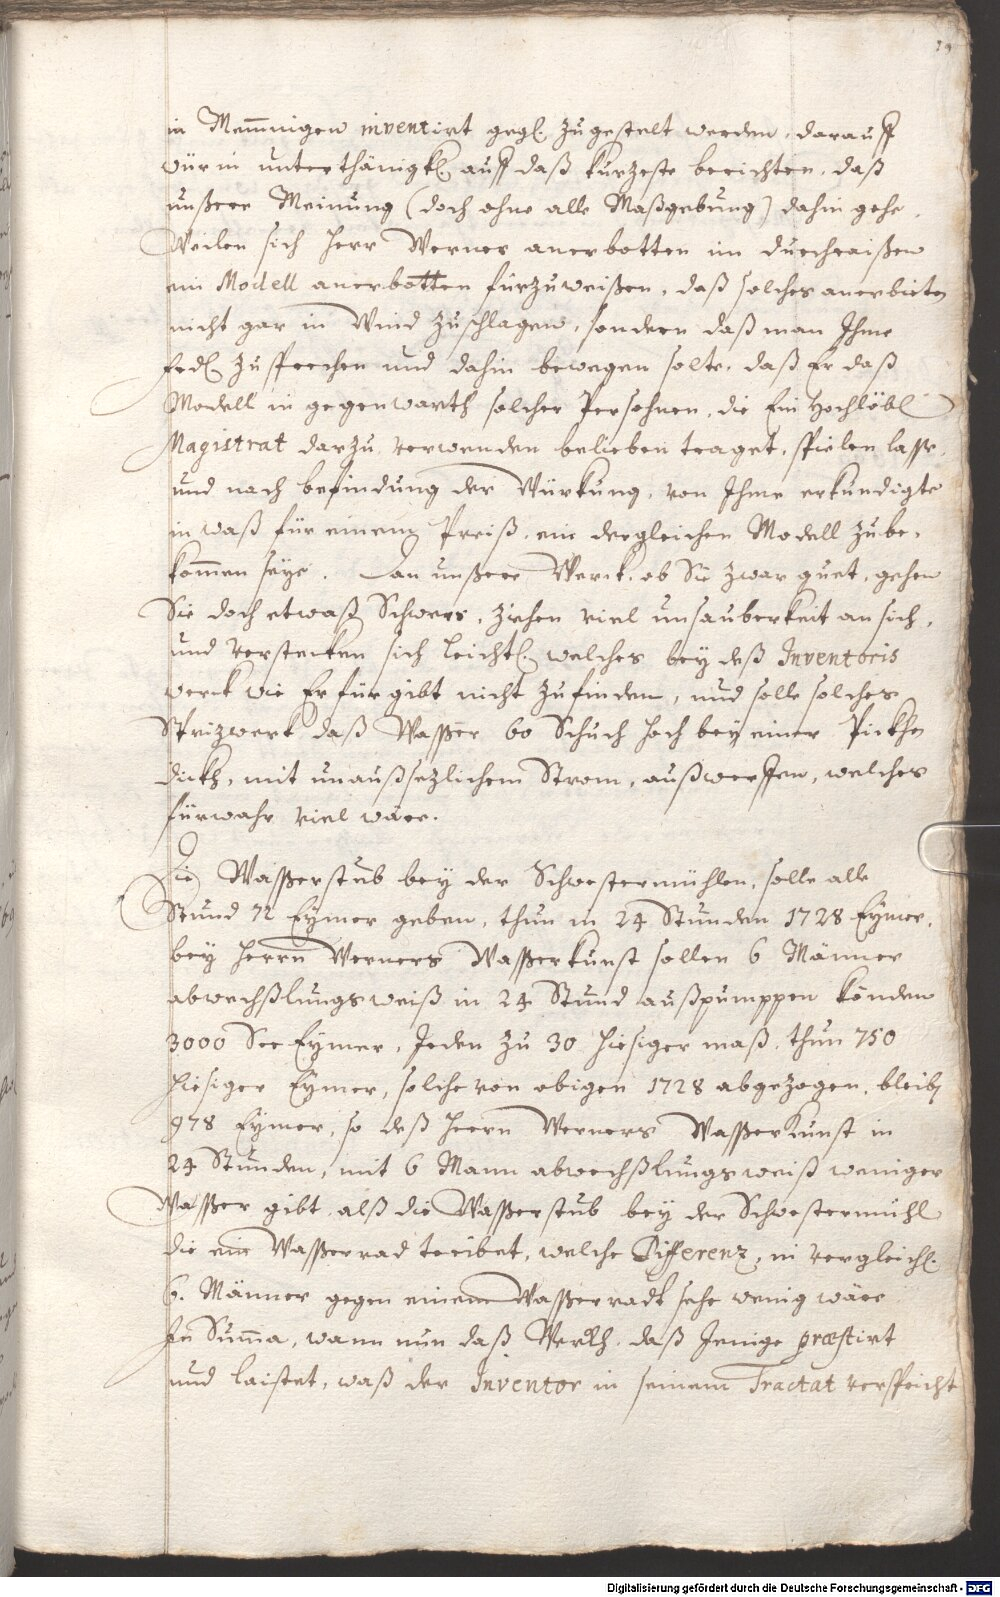 in Memmingen inventirt gegl. zugestelt worden, darauff
wür in unterthänigkl. auff daß kürzeste berichten, daß
unßere Meinung (doch ohne alle Maßgebung) dahin gehe,
Weilen sich Herr Werner anerbotten im durchraißen
ein Modell anerbotten fürzuweißen, daß solches anerbieten
nicht gar in Wind zuschlagen, sondern daß man Ihme
frdl. zusprechen und dahin bewegen solte, daß Er daß
Modell in gegenwarth solcher Persohnen, die Ein Hochlöbl.
Magistrat darzu verwenden belieben traget, spielen lasse,
und nach befindung der Würkung, von Ihme erkundigte
in waß für einem Preiß, ein dergleichen Modell zube-
kommen seye. Dan unßere Werck, ob Sie zwar guet, gehen
Sie doch etwaß Schwer, ziehen viel unsauberkeit an sich,
und verstecken sich leichtl. welches bey deß Inventoris
werck wie Er fürgibt nicht zufinden, und solle solches
Sprizwerk daß Wasser 60 Schuch hoch bey einer
dickh, mit unaußsezlichem Strom, außwerffen, welches
fürwahr viel wäre.
Die Wasserstub bey der Schwestermühlen, solle alle
Stund 72 Eymer geben, thun in 24 Stunden 1728 Eymer,
bey Herrn Werners Wasserkunst sollen 6 Männer
abwechßlungsweiß in 24 Stund außpumppen könden
3000 See Eymer, Jeden zu 30 hiesiger maß, thun 750
hiesiger Eymer, solche von obigen 1728 abgezogen, bleibt
978 Eymer, so deß Herrn Werners Wasserkunst in
24 Stunden, mit 6 Mann abwechßlungsweiß weniger
Wasser gibt alß die Wasserstub bey der Schwestermühl
die ein Wasserrad treibet, welche Differenz, in vergleichl.
6. Männer gegen einem Wasserradt sehr wenig wäre
In Summa, wann nun daß Werkh, daß Jenige præstirt
und laistet, waß der Inventor in seinem Tractat verspricht
Digitalisierung gefördert durch die Deutsche Forschungsgemeinschaft - DFG